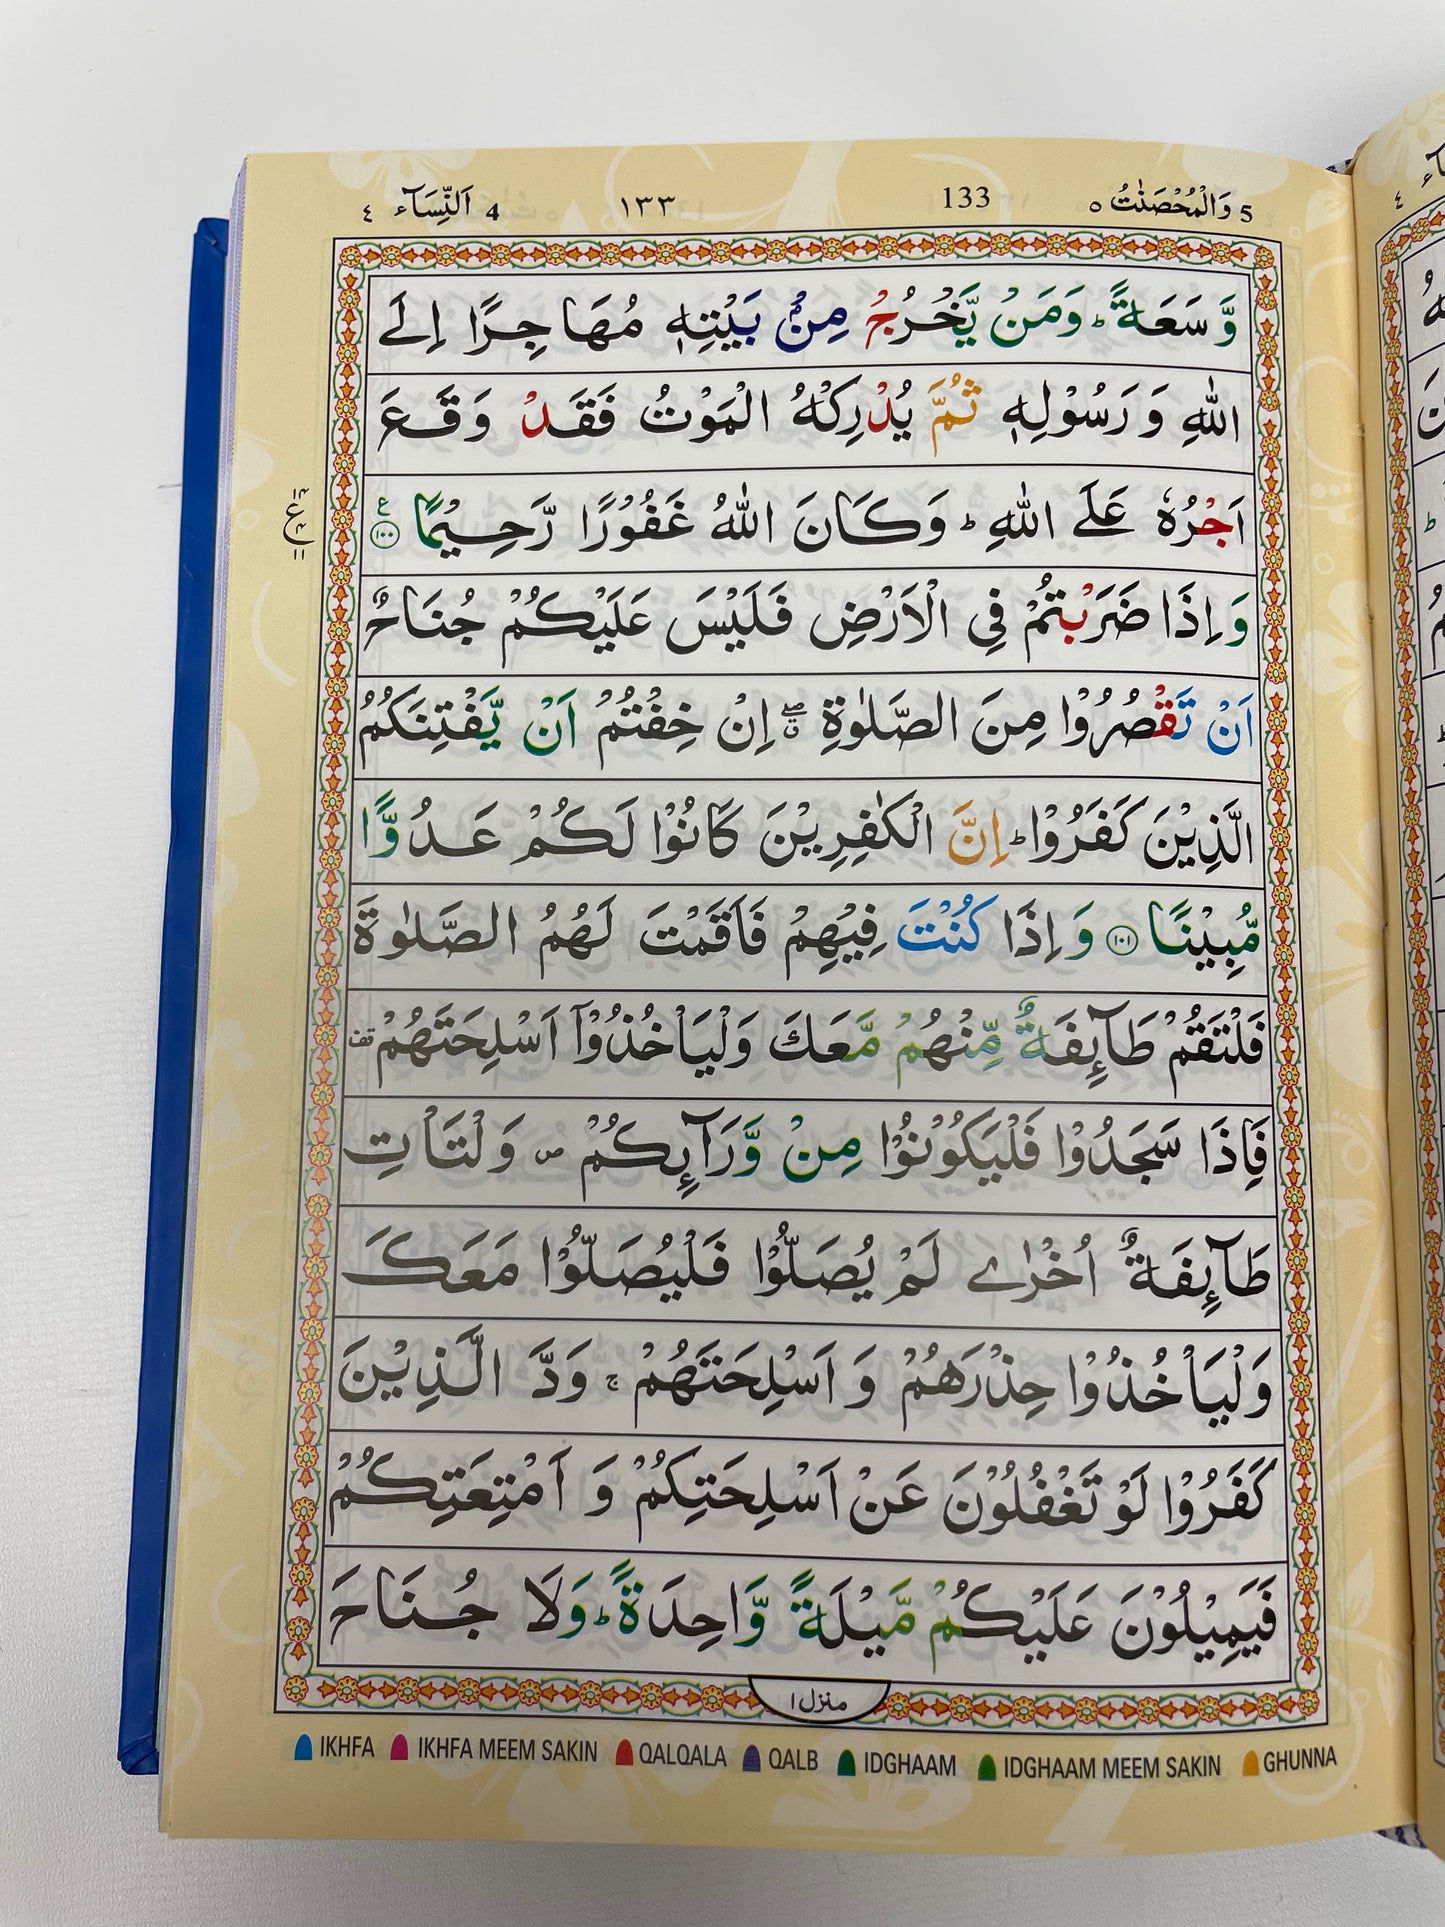 5 وَالْمُحْصَنٰتُ ٥ 133 ١٣٣ 4 اَلنِّسَآء ٤
وَّ سَعَةً ؕ وَمَنْ يَّخْرُجْ مِنْۢ بَيْتِهٖ مُهَاجِرًا اِلَى
اللّٰهِ وَ رَسُوْلِهٖ ثُمَّ يُدْرِكْهُ الْمَوْتُ فَقَدْ وَقَعَ
اَجْرُهٗ عَلَى اللّٰهِ ؕ وَكَانَ اللّٰهُ غَفُوْرًا رَّحِيْمًا ۧ ١٠٠
١٤
ع
٤
١١
وَ اِذَا ضَرَبْتُمْ فِى الْاَرْضِ فَلَيْسَ عَلَيْكُمْ جُنَاحٌ
اَنْ تَقْصُرُوْا مِنَ الصَّلٰوةِ ۖ ق اِنْ خِفْتُمْ اَنْ يَّفْتِنَكُمُ
الَّذِيْنَ كَفَرُوْا ؕ اِنَّ الْكٰفِرِيْنَ كَانُوْا لَكُمْ عَدُوًّا
مُّبِيْنًا ١٠١ وَ اِذَا كُنْتَ فِيْهِمْ فَاَقَمْتَ لَهُمُ الصَّلٰوةَ
فَلْتَقُمْ طَآىِٕفَةٌ مِّنْهُمْ مَّعَكَ وَلْيَاْخُذُوْۤا اَسْلِحَتَهُمْ قف
فَاِذَا سَجَدُوْا فَلْيَكُوْنُوْا مِنْ وَّرَآىِٕكُمْ ص وَلْتَاْتِ
طَآىِٕفَةٌ اُخْرٰى لَمْ يُصَلُّوْا فَلْيُصَلُّوْا مَعَكَ
وَلْيَاْخُذُوْا حِذْرَهُمْ وَ اَسْلِحَتَهُمْ ۚ وَدَّ الَّذِيْنَ
كَفَرُوْا لَوْ تَغْفُلُوْنَ عَنْ اَسْلِحَتِكُمْ وَ اَمْتِعَتِكُمْ
فَيَمِيْلُوْنَ عَلَيْكُمْ مَّيْلَةً وَّاحِدَةً ؕ وَلَا جُنَاحَ
منزل ١
IKHFA IKHFA MEEM SAKIN QALQALA QALB IDGHAAM IDGHAAM MEEM SAKIN GHUNNA